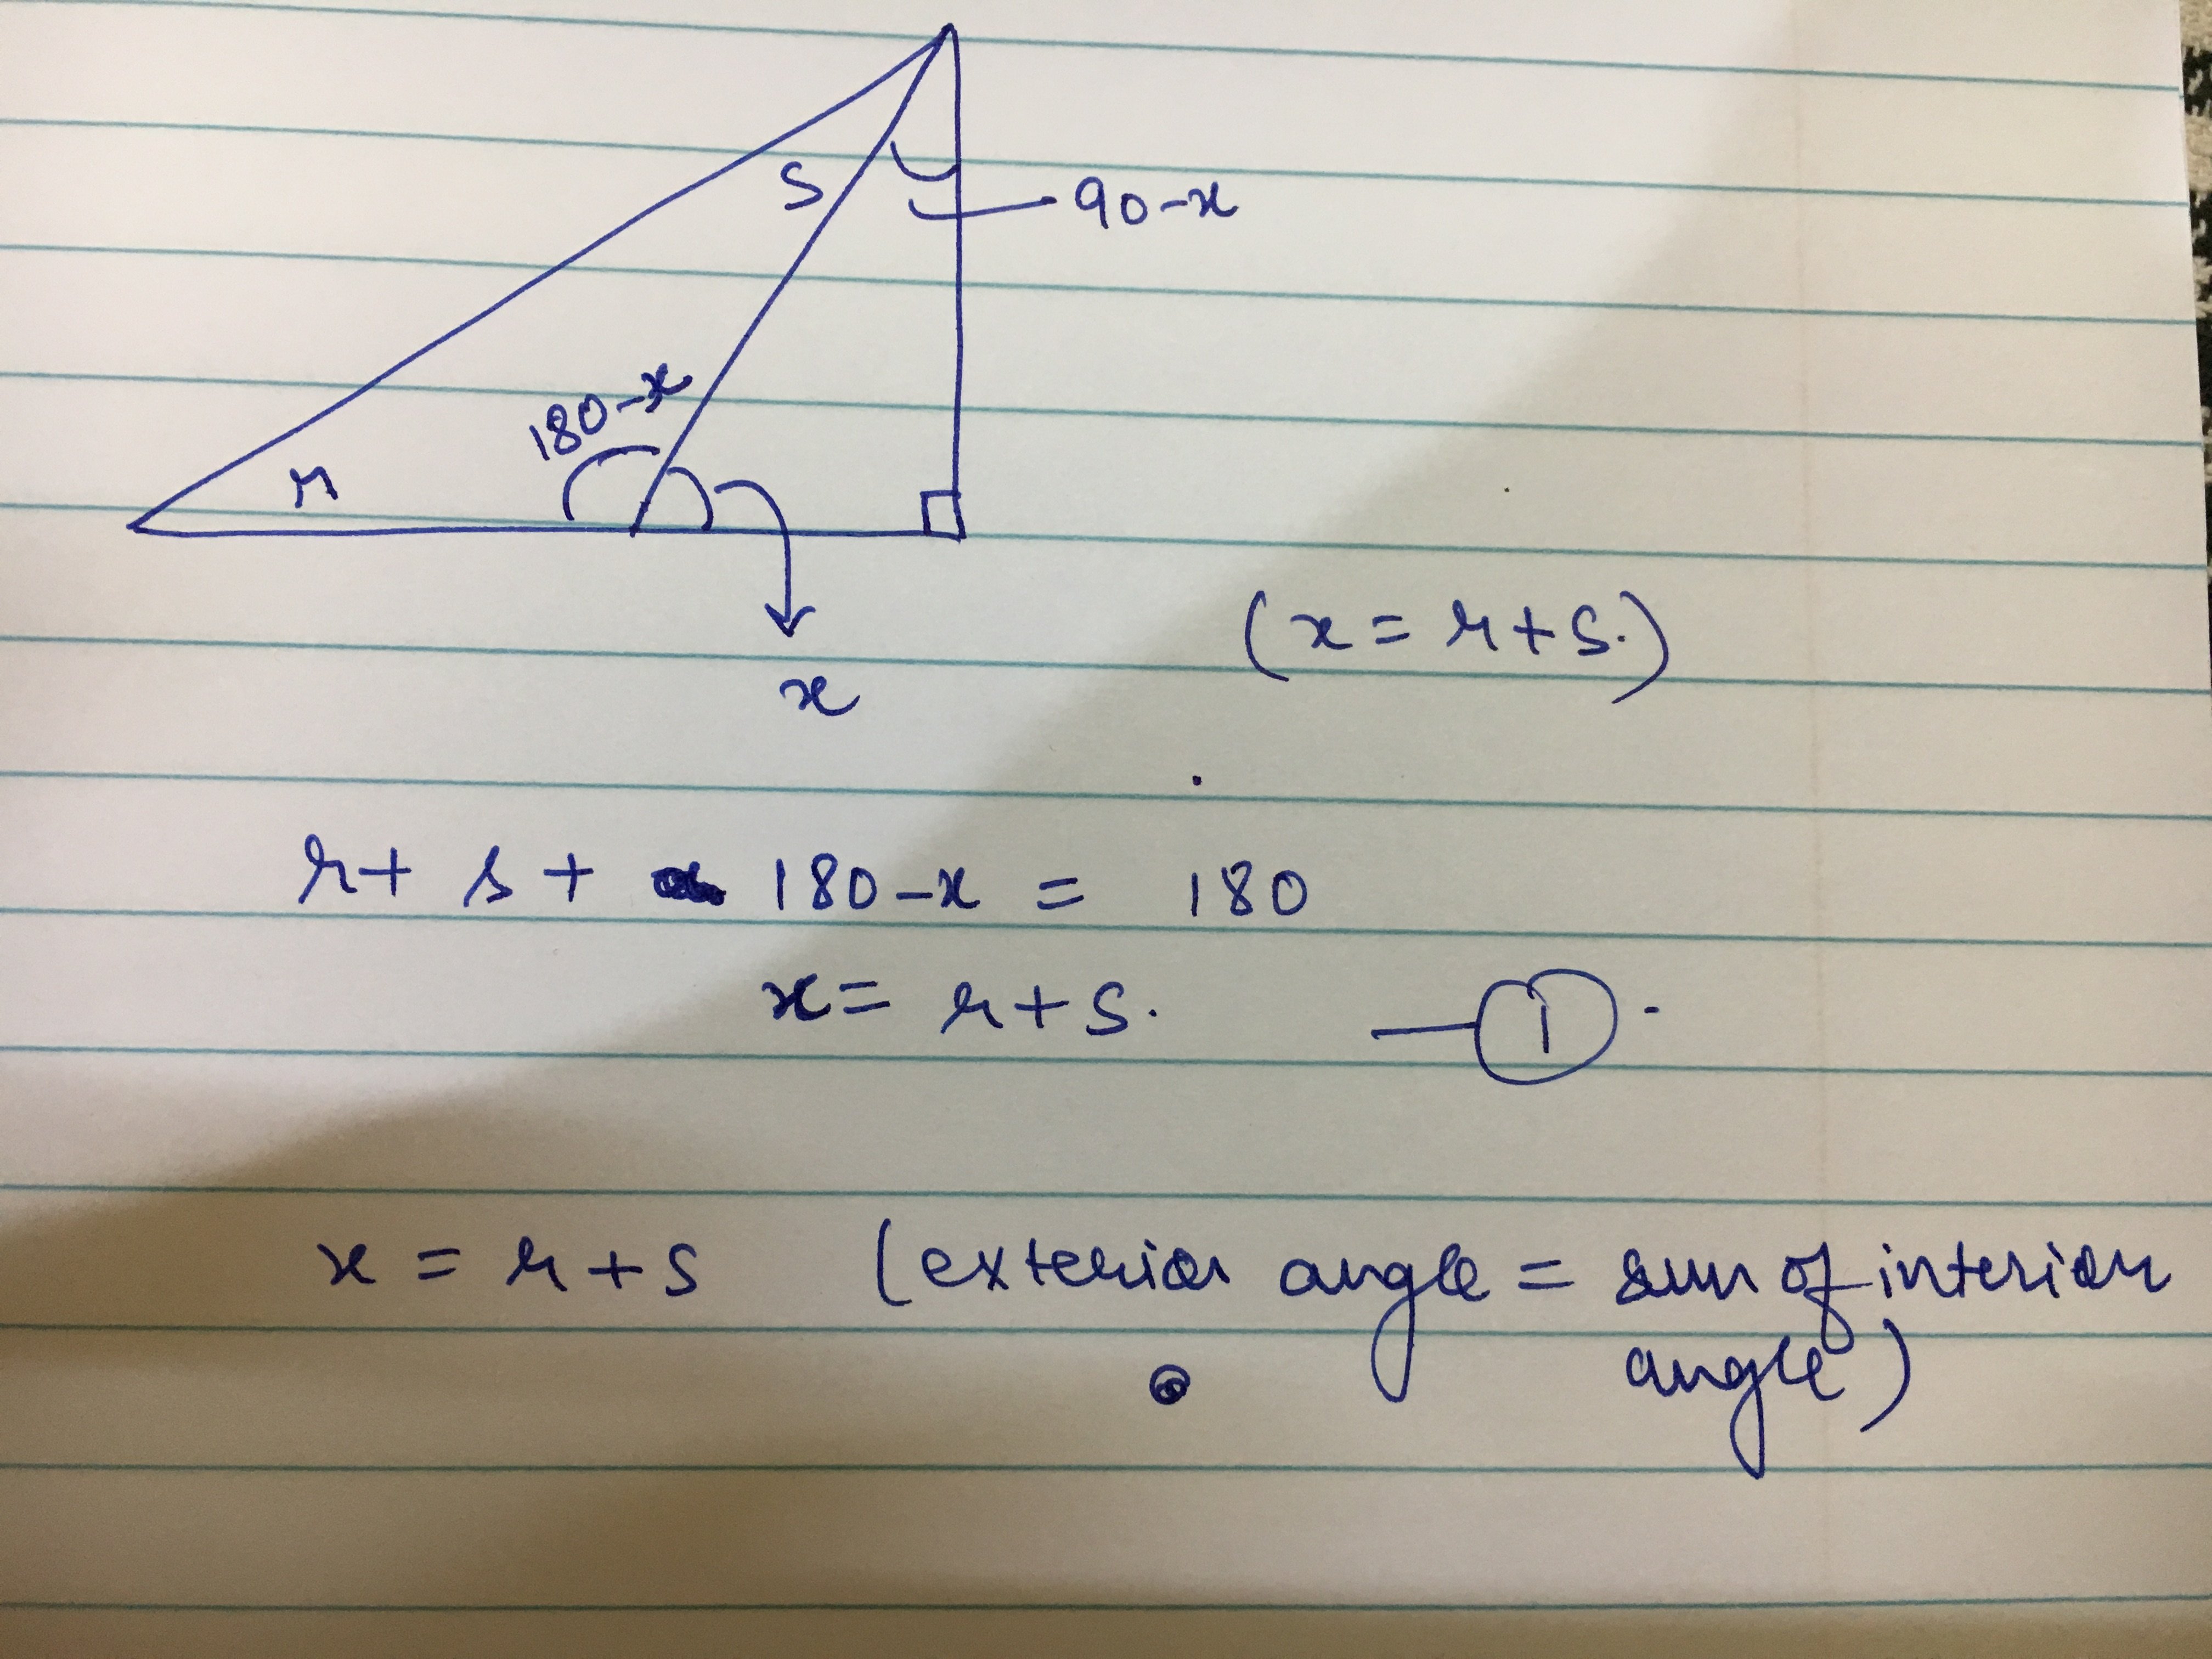 S
90-x
180-x
r
x
(x = r + s.)
r + s + 180-x = 180
x = r + s. — 1 .
x = r + s (exterior angle = sum of interior
angle)